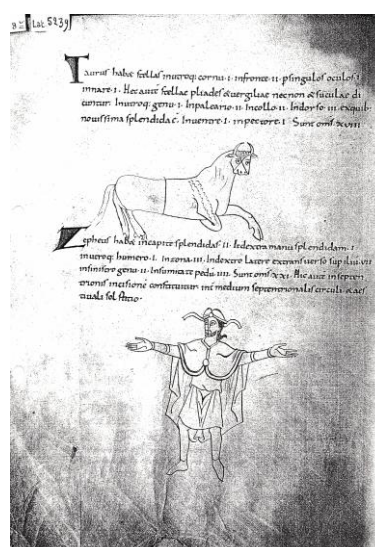 Lat. 5239
Taurus habet stellas in utroq; cornu · i · in fronte · ii · p singulos oculos · i
in nare · i · Hec autē stellae pliades & uergiliae necnon & suculae di
cuntur. In utroq; genu · i · In paleario · ii · In collo · ii · In dorso · iii · ex quib;
nouissima splendida ē. In uentre · i · in pectore · i · Sunt oms̄ xviii
Zepheus habet in capite splendidas · ii · In dextra manu splendidam · i ·
in utroq; humero · i · In zona · iii · In dextro latere ex transuerso sup
in sinistro genu · ii · In summitate pedū · iiii · Sunt oms̄ xxi · Hic autē in septen
trionis incisione constituitur in medium septentrionalis circuli & aes
tiuali solstitio ·